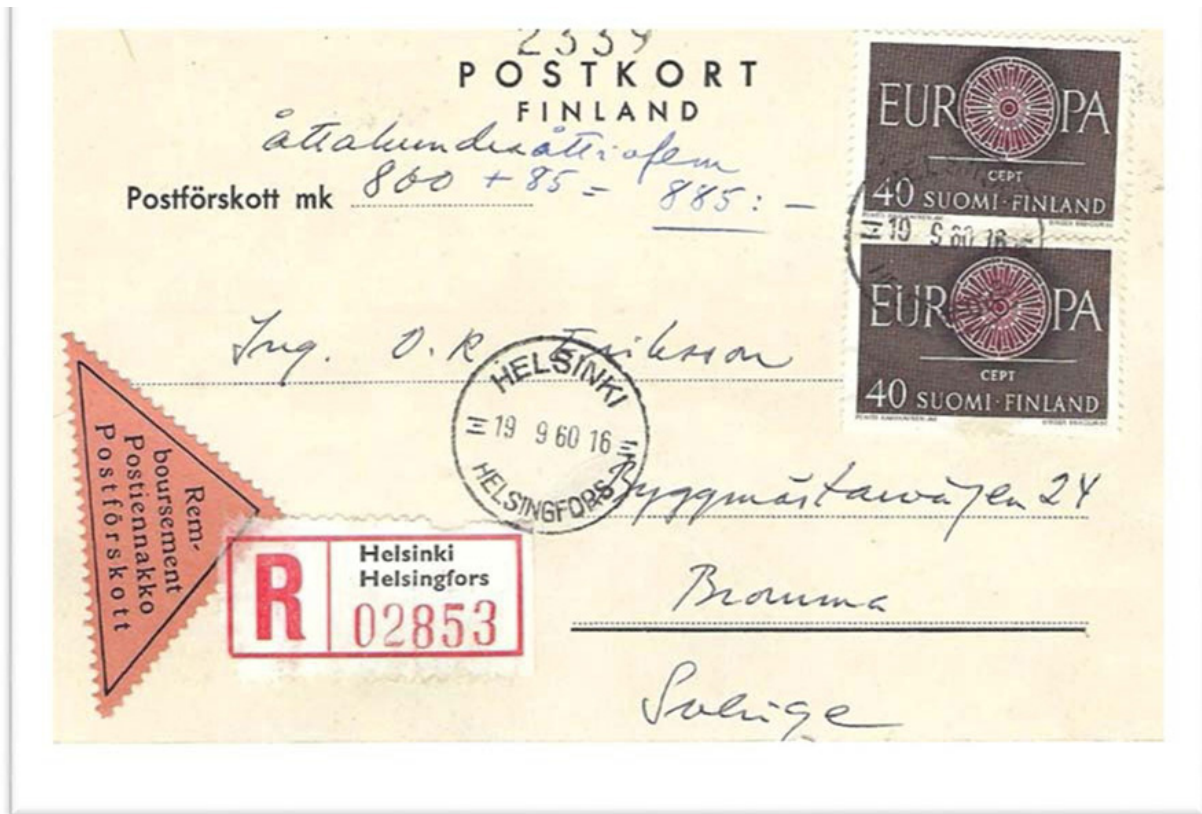 2339
POSTKORT
FINLAND
åttahundraåttiofem
Postförskott mk 800 + 85 = 885:-
EUROPA
CEPT
40 SUOMI·FINLAND
19 9 60 16
EUROPA
CEPT
40 SUOMI·FINLAND
Ing. O. K Eriksson
HELSINKI
19 9 60 16
HELSINGFORS
Byggmästarvägen 24
Bromma
Sverige
Rem-
boursement
Postiennakko
Postförskott
R
Helsinki
Helsingfors
02853